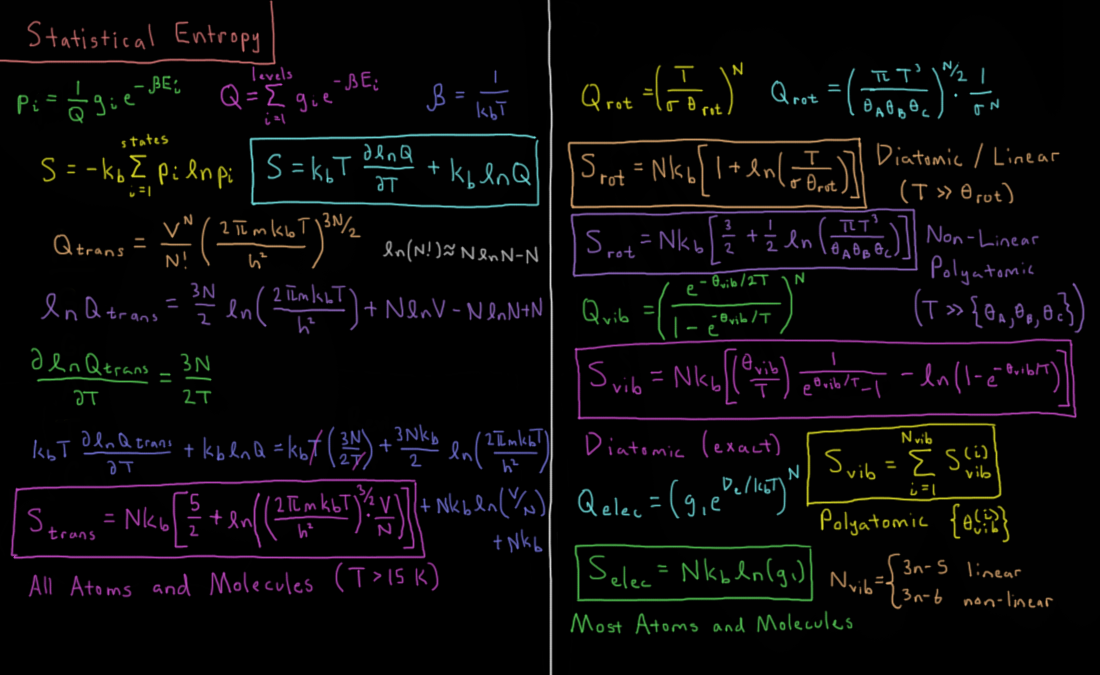 Statistical Entropy
pᵢ = 1/Q gᵢe^(-βEᵢ)   Q = Σ_(i=1)^(levels) gᵢe^(-βEᵢ)   β = 1/(k_bT)
S = -k_b Σ_(i=1)^(states) pᵢ ln pᵢ   S = k_bT ∂lnQ/∂T + k_b lnQ
Q_trans = V^N/N! (2πmk_bT/h²)^(3N/2)   ln(N!) ≈ N ln N - N
ln Q_trans = 3N/2 ln(2πmk_bT/h²) + N ln V - N ln N + N
∂lnQ_trans/∂T = 3N/2T
k_bT ∂lnQ_trans/∂T + k_b lnQ = k_bT(3N/2T) + 3Nk_b/2 ln(2πmk_bT/h²)
+ Nk_b ln(V/N)
+ Nk_b
S_trans = Nk_b[5/2 + ln((2πmk_bT/h²)^(3/2) · V/N)]
All Atoms and Molecules (T > 15 K)
Q_rot = (T/(σ θ_rot))^N   Q_rot = (πT³/(θ_Aθ_Bθ_C))^(N/2) · 1/σ^N
S_rot = Nk_b[1 + ln(T/(σ θ_rot))]   Diatomic / Linear
(T ≫ θ_rot)
S_rot = Nk_b[3/2 + 1/2 ln(πT³/(θ_Aθ_Bθ_C))]   Non-Linear
Polyatomic
(T ≫ {θ_A, θ_B, θ_C})
Q_vib = (e^(-θ_vib/2T)/(1 - e^(-θ_vib/T)))^N
S_vib = Nk_b[(θ_vib/T) 1/(e^(θ_vib/T) - 1) - ln(1 - e^(-θ_vib/T))]
Diatomic (exact)
S_vib = Σ_(i=1)^(N_vib) S_vib^(i)
Polyatomic {θ_vib^(i)}
Q_elec = (g₁e^(D_e/k_bT))^N
S_elec = Nk_b ln(g₁)
N_vib = { 3n-5 linear
3n-6 non-linear
Most Atoms and Molecules